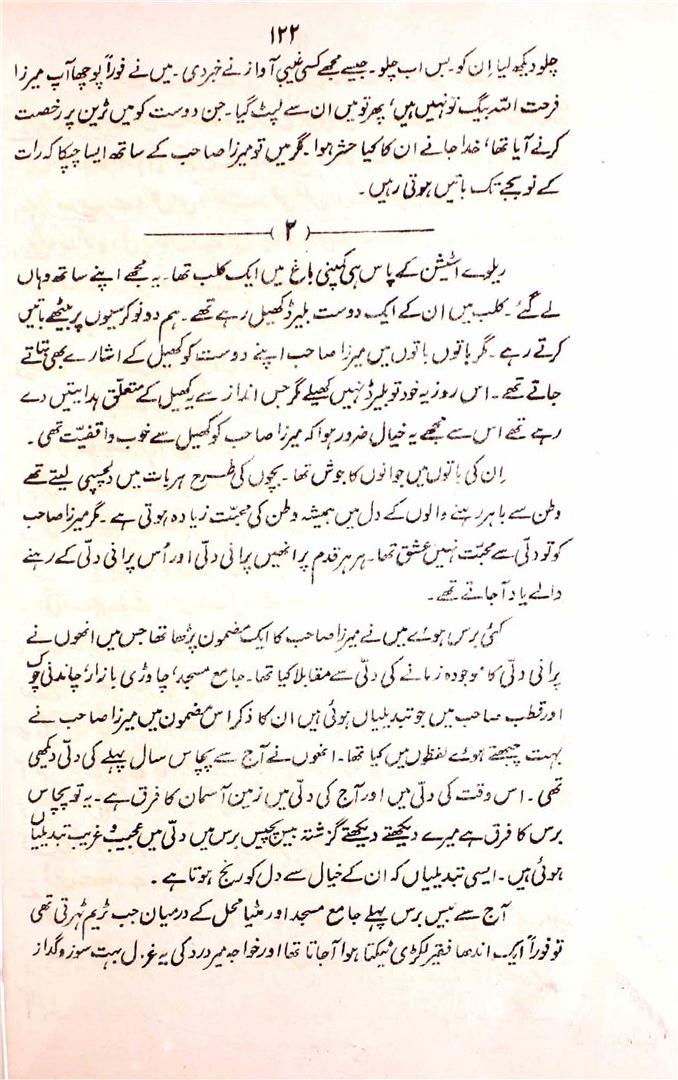 ۱۲۲
چلو دیکھ لیا ان کو۔ بس اب چلو۔ جیسے مجھے کسی غیبی آواز نے خبر دی۔ میں نے فوراً پوچھا آپ میرزا
فرحت اللہ بیگ تو نہیں ہیں، پھر تو میں ان سے لپٹ گیا۔ جن دوست کو میں ٹرین پر رخصت
کرنے آیا تھا، خدا جانے ان کا کیا حشر ہوا۔ مگر میں تو میرزا صاحب کے ساتھ ایسا چپکا کہ رات
کے نو بجے تک باتیں ہوتی رہیں۔
(۲)
ریلوے اسٹیشن کے پاس ہی کمپنی باغ میں ایک کلب تھا۔ یہ مجھے اپنے ساتھ وہاں
لے گئے۔ کلب میں ان کے ایک دوست بلیرڈ کھیل رہے تھے۔ ہم دونو کرسیوں پر بیٹھے باتیں
کرتے رہے۔ مگر باتوں باتوں میں میرزا صاحب اپنے دوست کو کھیل کے اشارے بھی بتاتے
جاتے تھے۔ اس روز یہ خود تو بلیرڈ نہیں کھیلے مگر جس انداز سے یہ کھیل کے متعلق ہدایتیں دے
رہے تھے اس سے مجھے یہ خیال ضرور ہوا کہ میرزا صاحب کو کھیل سے خوب واقفیت تھی۔
ان کی باتوں میں جوانوں کا جوش تھا۔ بچوں کی طرح ہر بات میں دلچسپی لیتے تھے
وطن سے باہر رہنے والوں کے دل میں ہمیشہ وطن کی محبت زیادہ ہوتی ہے۔ مگر میرزا صاحب
کو تو دلّی سے محبت نہیں عشق تھا۔ ہر ہر قدم پر انھیں پرانی دلّی اور اُس پرانی دلّی کے رہنے
والے یاد آجاتے تھے۔
کئی برس ہوئے میں نے میرزا صاحب کا ایک مضمون پڑھا تھا جس میں انھوں نے
پرانی دلّی کا موجودہ زمانے کی دلّی سے مقابلا کیا تھا۔ جامع مسجد، چاوڑی بازار، چاندنی چوک
اور قطب صاحب میں جو تبدیلیاں ہوئی ہیں ان کا ذکر اس مضمون میں میرزا صاحب نے
بہت چبھتے ہوئے لفظوں میں کیا تھا۔ انھوں نے آج سے پچاس سال پہلے کی دلّی دیکھی
تھی۔ اس وقت کی دلّی میں اور آج کی دلّی میں زمین آسمان کا فرق ہے۔ یہ تو پچاس
برس کا فرق ہے میرے دیکھتے دیکھتے گزشتہ بیس پچیس برس میں دلّی میں عجیب و غریب تبدیلیاں
ہوئی ہیں۔ ایسی تبدیلیاں کہ ان کے خیال سے دل کو رنج ہوتا ہے۔
آج سے بیس برس پہلے جامع مسجد اور مٹیا محل کے درمیان جب ٹریم ٹہرتی تھی
تو فوراً ایک اندھا فقیر لکڑی ٹیکتا ہوا آجاتا تھا اور خواجہ میر درد کی یہ غزل بہت سوز و گداز